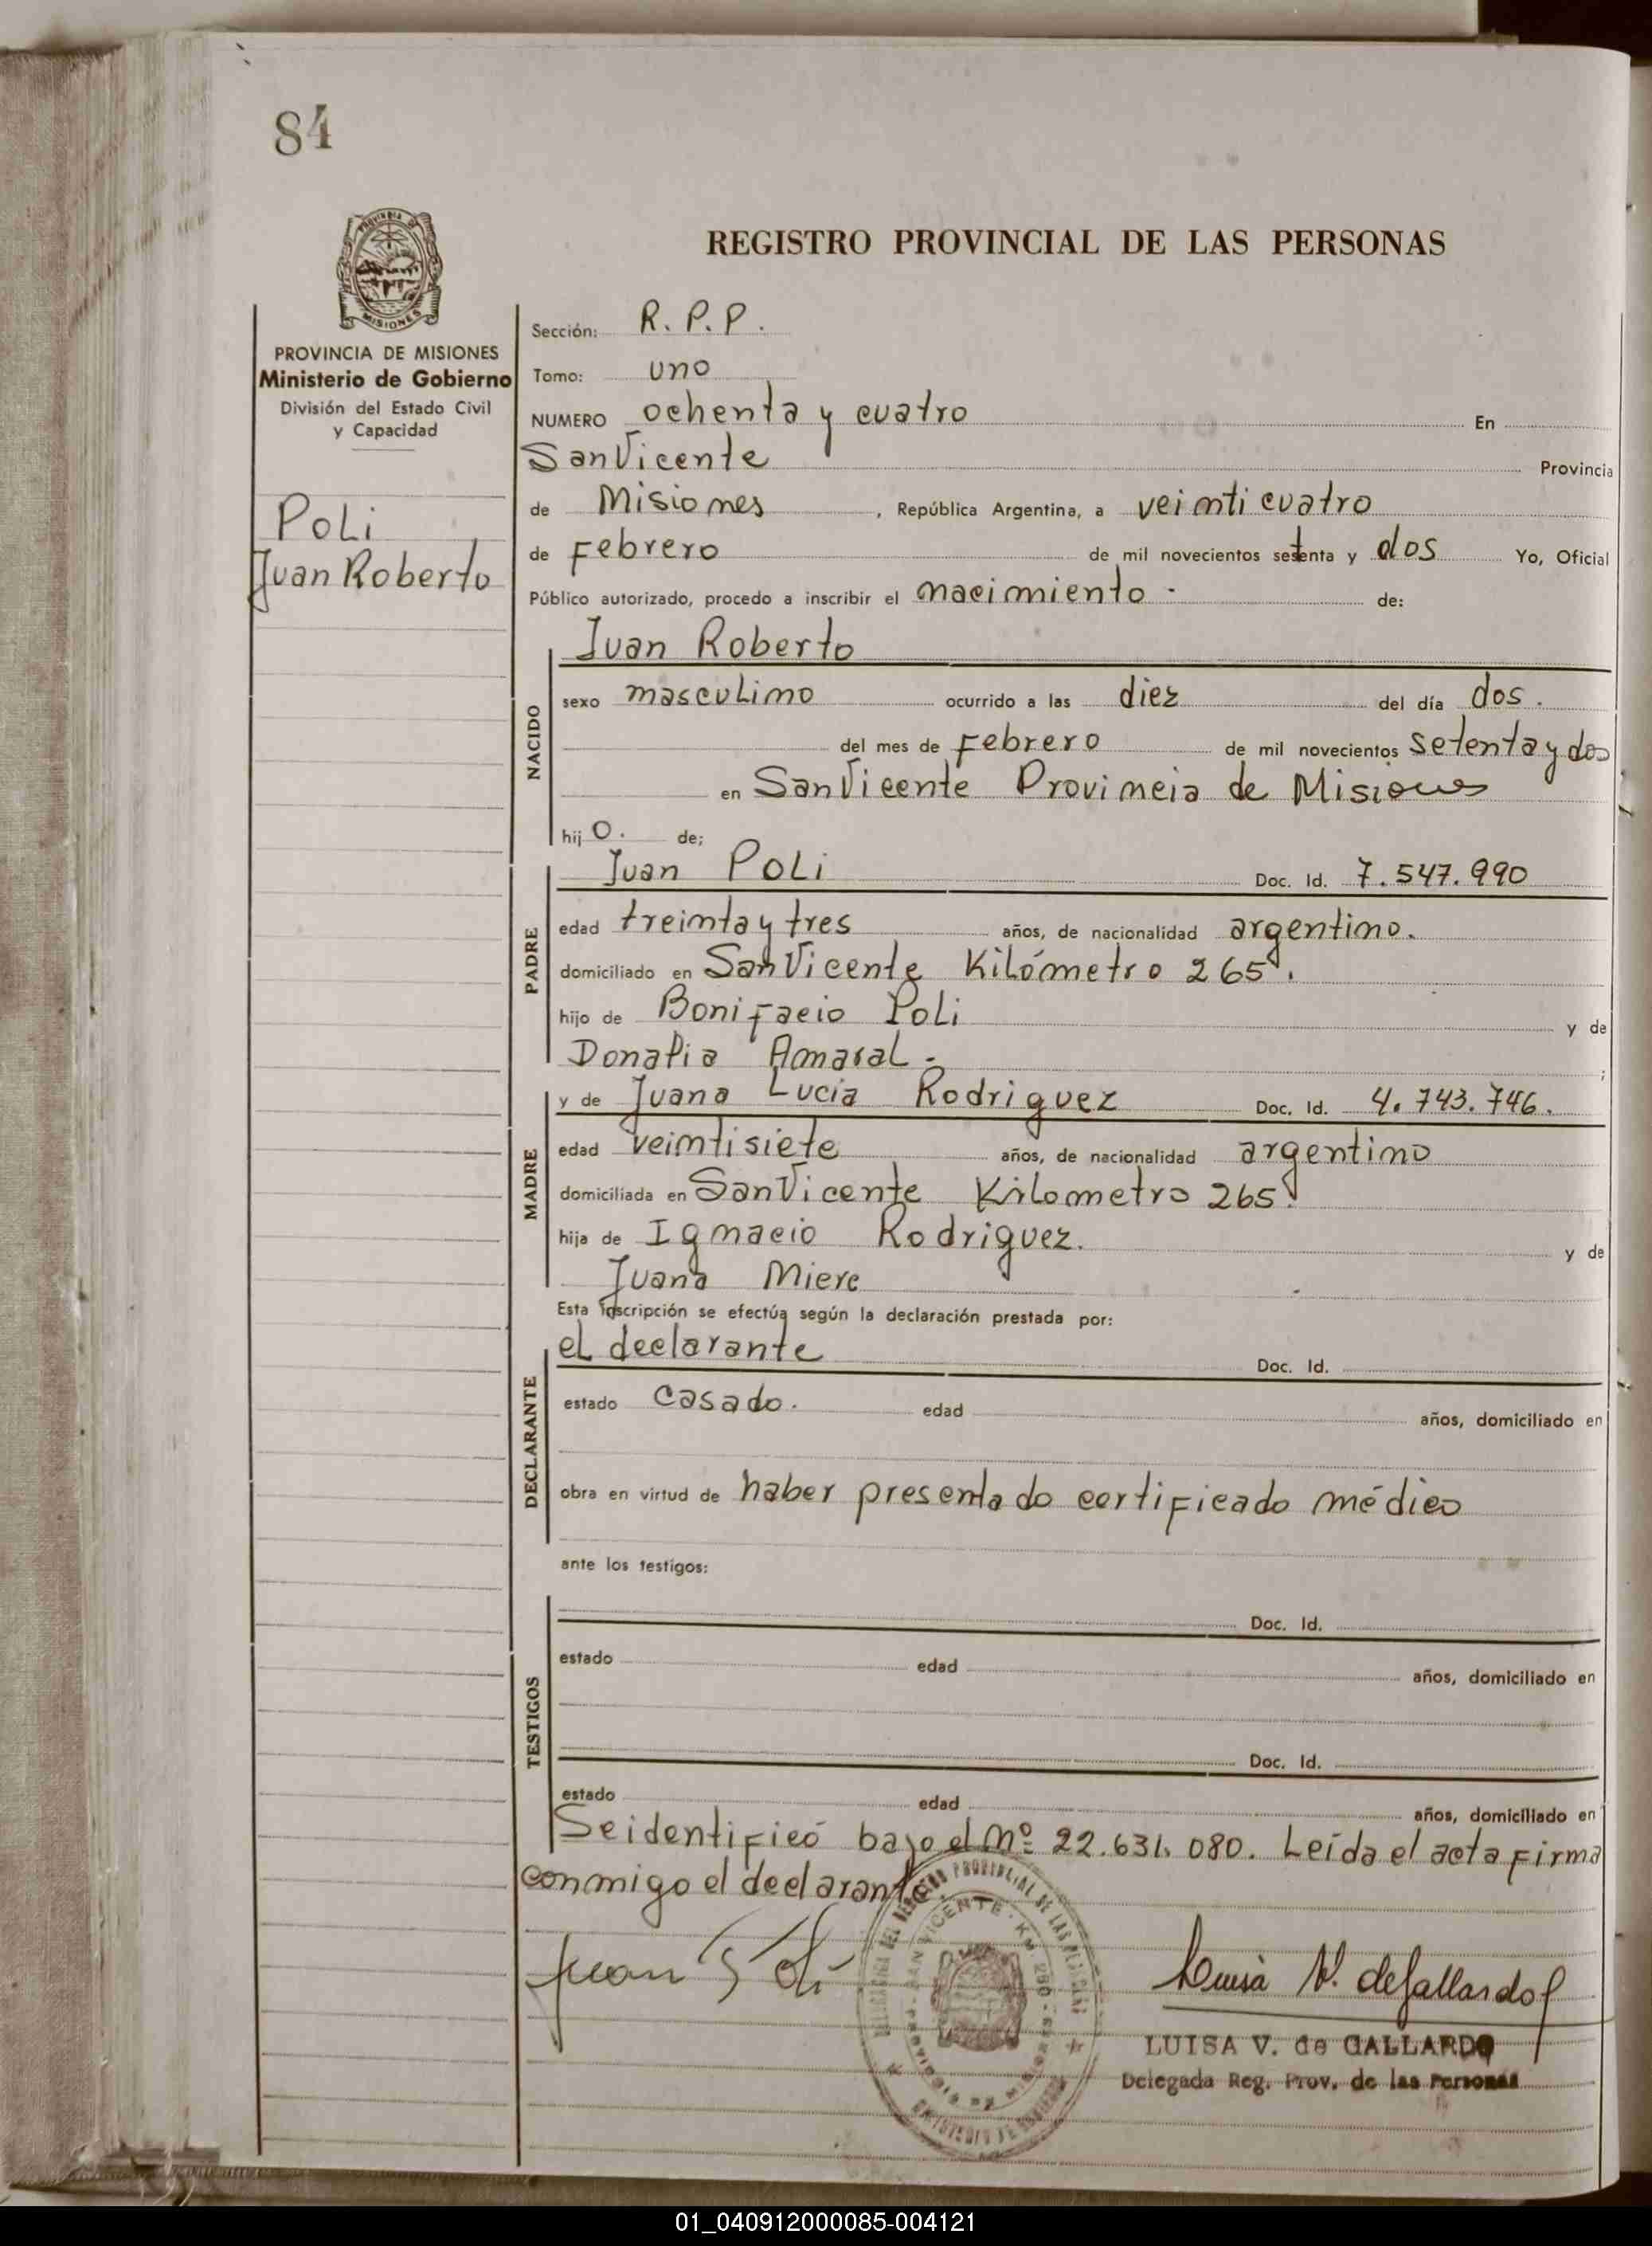 84
PROVINCIA DE
MISIONES
REGISTRO PROVINCIAL DE LAS PERSONAS
PROVINCIA DE MISIONES
Ministerio de Gobierno
División del Estado Civil
y Capacidad
Poli
Juan Roberto
Sección: R. P. P.
Tomo: uno
NUMERO ochenta y cuatro En
San Vicente Provincia
de Misiones, República Argentina, a veinticuatro
de Febrero de mil novecientos setenta y dos Yo, Oficial
Público autorizado, procedo a inscribir el nacimiento - de:
NACIDO
Juan Roberto
sexo masculino ocurrido a las diez del día dos.
del mes de Febrero de mil novecientos setenta y dos
en San Vicente Provincia de Misiones
hijo. de;
PADRE
Juan Poli Doc. Id. 7.547.990
edad treinta y tres años, de nacionalidad argentino.
domiciliado en San Vicente Kilómetro 265.
hijo de Bonifacio Poli y de
Donatia Amaral - ;
MADRE
y de Juana Lucía Rodriguez Doc. Id. 4.743.746.
edad veintisiete años, de nacionalidad argentino
domiciliada en San Vicente Kilometro 265.
hija de Ignacio Rodriguez. y de
Juana Miere
Esta inscripción se efectúa según la declaración prestada por:
DECLARANTE
el declarante Doc. Id.
estado casado. edad años, domiciliado en
obra en virtud de haber presentado certificado médico
ante los testigos:
TESTIGOS
Doc. Id.
estado edad años, domiciliado en
Doc. Id.
estado edad años, domiciliado en
Se identificó bajo el Nº 22.631.080. Leída el acta firma
conmigo el declarante.
Juan Poli
Luisa V. de Gallardo
LUISA V. de GALLARDO
Delegada Reg. Prov. de las Personas
SAN VICENTE - KM.
01_040912000085-004121